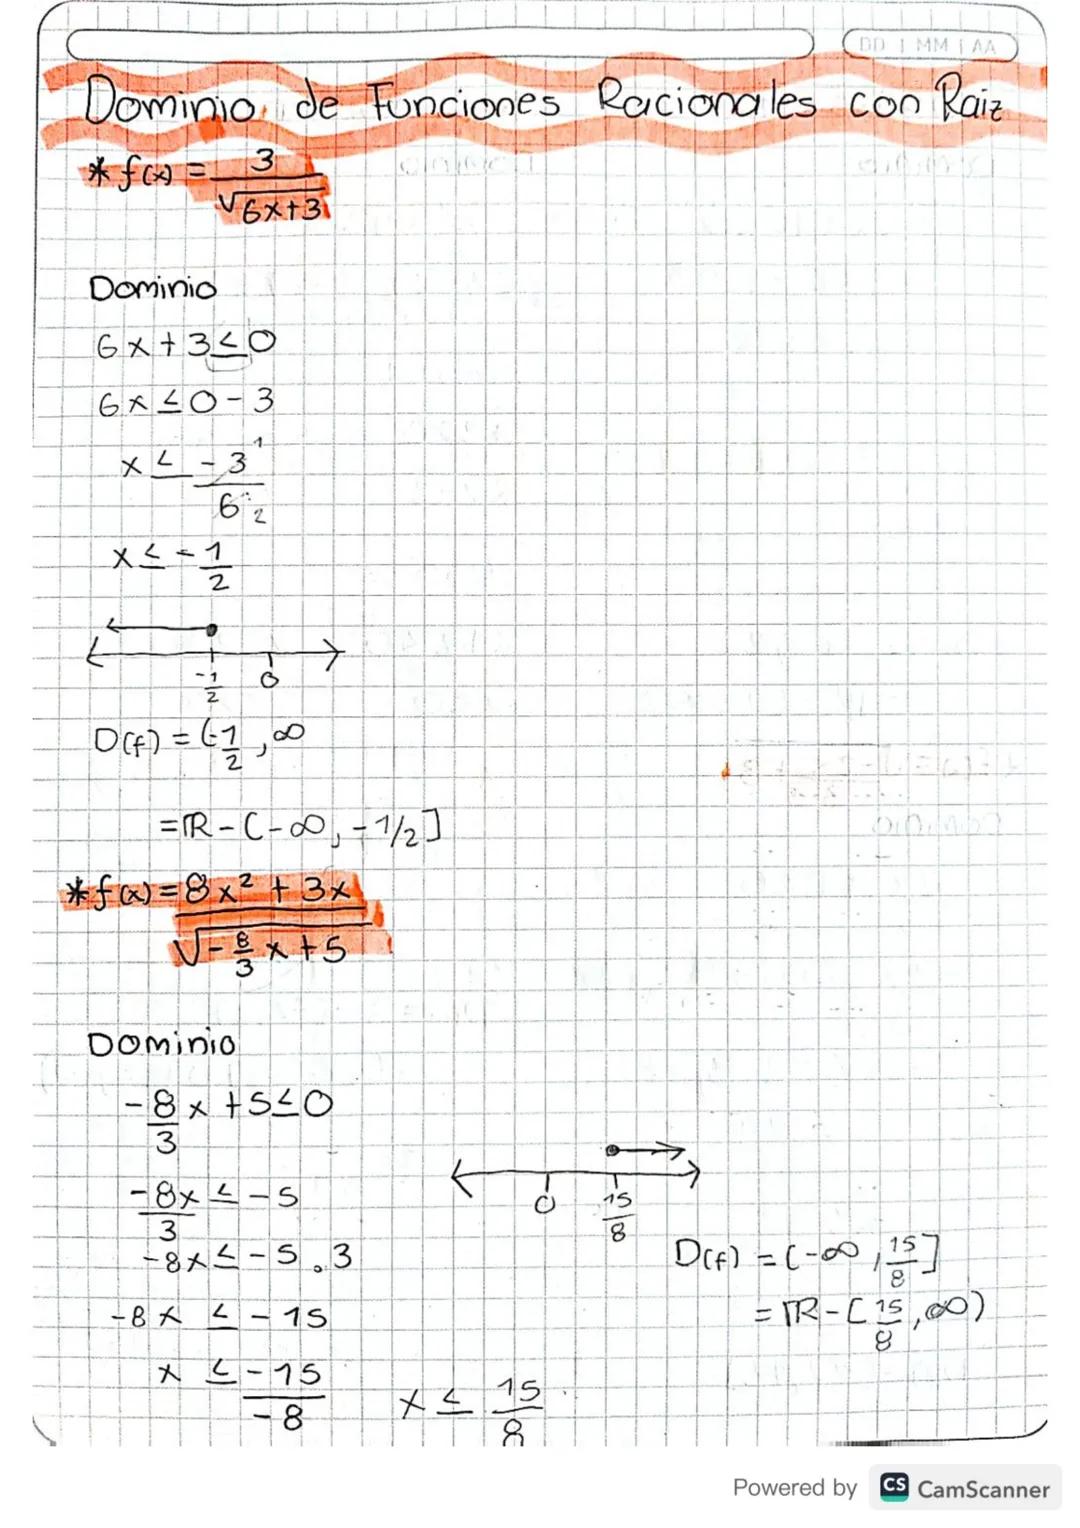 DD | MM | AA
Dominio de Funciones Racionales con Raiz
* f(x) = 3
√6x+3
Dominio
6x + 3 ≤ 0
6x ≤ 0 - 3
x ≤ - 3 1
6 2
x ≤ - 1
2
-1
2
0
D(f) = (-1/2 , ∞
= ℝ - (-∞, -1/2]
* f(x) = 8x² + 3x
√-8/3 x + 5
Dominio
-8/3 x + 5 ≤ 0
-8x/3 ≤ -5
-8x ≤ -5 . 3
-8x ≤ -15
x ≤ -15
-8
x ≤ 15
8
0
15
8
D(f) = (-∞, 15/8]
= ℝ - [15/8, ∞)
Powered by CS CamScanner